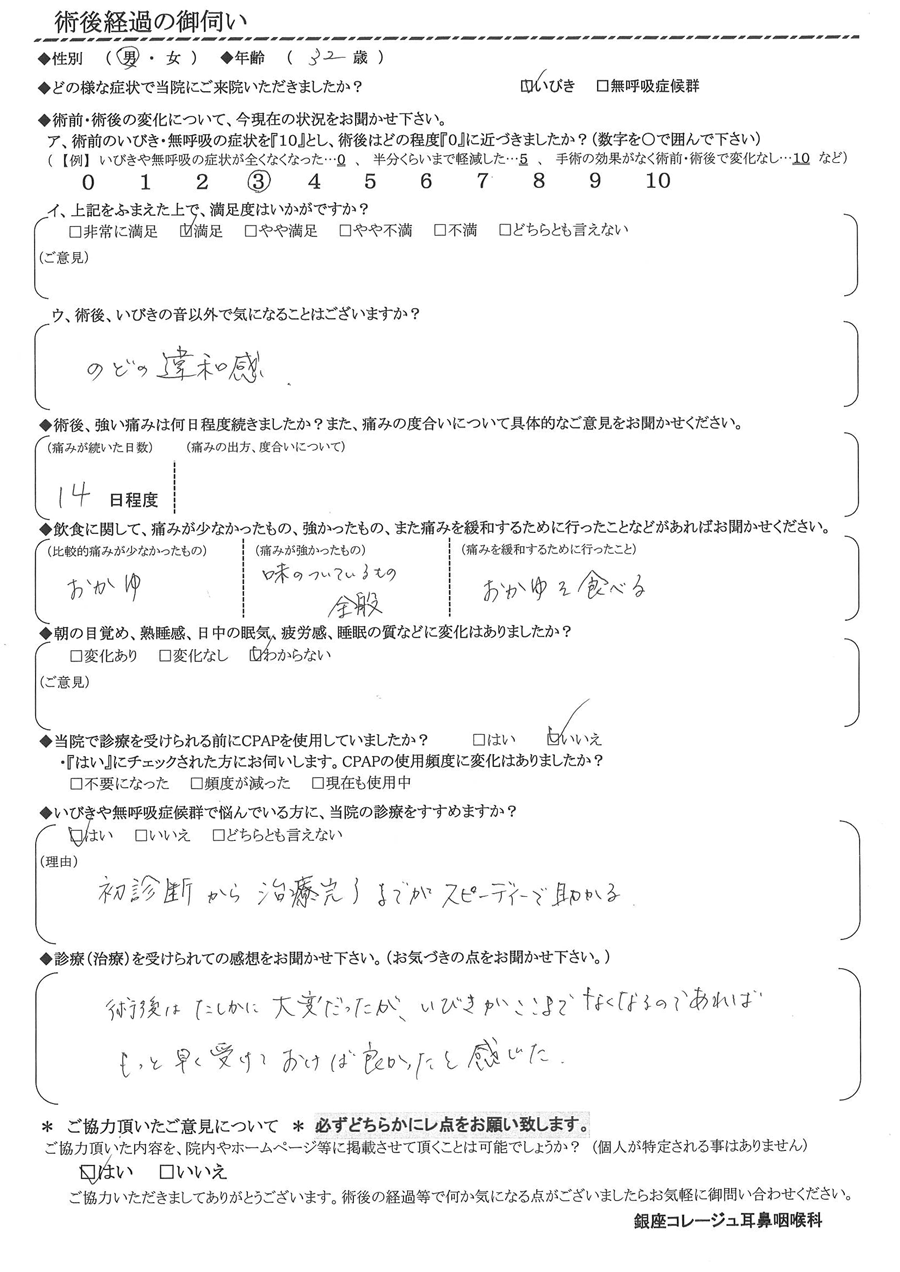 術後経過の御伺い
◆性別 （ 男 ・ 女 ） ◆年齢 （ 32 歳 ）
◆どの様な症状で当院にご来院いただきましたか？ ☑いびき □無呼吸症候群
◆術前・術後の変化について、今現在の状況をお聞かせ下さい。
ア、術前のいびき・無呼吸の症状を『10』とし、術後はどの程度『0』に近づきましたか？（数字を○で囲んで下さい）
（ 【例】 いびきや無呼吸の症状が全くなくなった…0 、 半分くらいまで軽減した…5 、 手術の効果がなく術前・術後で変化なし…10 など）
0 1 2 ③ 4 5 6 7 8 9 10
イ、上記をふまえた上で、満足度はいかがですか？
□非常に満足 ☑満足 □やや満足 □やや不満 □不満 □どちらとも言えない
（ご意見）
ウ、術後、いびきの音以外で気になることはございますか？
のどの違和感.
◆術後、強い痛みは何日程度続きましたか？また、痛みの度合いについて具体的なご意見をお聞かせください。
（痛みが続いた日数） （痛みの出方、度合いについて）
14 日程度
◆飲食に関して、痛みが少なかったもの、強かったもの、また痛みを緩和するために行ったことなどがあればお聞かせください。
（比較的痛みが少なかったもの） （痛みが強かったもの） （痛みを緩和するために行ったこと）
おかゆ 味のついているもの 全般 おかゆを食べる
◆朝の目覚め、熟睡感、日中の眠気、疲労感、睡眠の質などに変化はありましたか？
□変化あり □変化なし ☑わからない
（ご意見）
◆当院で診療を受けられる前にCPAPを使用していましたか？ □はい ☑いいえ
・『はい』にチェックされた方にお伺いします。CPAPの使用頻度に変化はありましたか？
□不要になった □頻度が減った □現在も使用中
◆いびきや無呼吸症候群で悩んでいる方に、当院の診療をすすめますか？
☑はい □いいえ □どちらとも言えない
（理由）
初診断から治療完了までがスピーディーで助かる.
◆診療（治療）を受けられての感想をお聞かせ下さい。（お気づきの点をお聞かせ下さい。）
術後はたしかに大変だったが、いびきがここまでなくなるのであれば
もっと早く受けておけば良かったと感じた.
＊ ご協力頂いたご意見について ＊ 必ずどちらかにレ点をお願い致します。
ご協力頂いた内容を、院内やホームページ等に掲載させて頂くことは可能でしょうか？ （個人が特定される事はありません）
☑はい □いいえ
ご協力いただきましてありがとうございます。術後の経過等で何か気になる点がございましたらお気軽に御問い合わせください。
銀座コレージュ耳鼻咽喉科